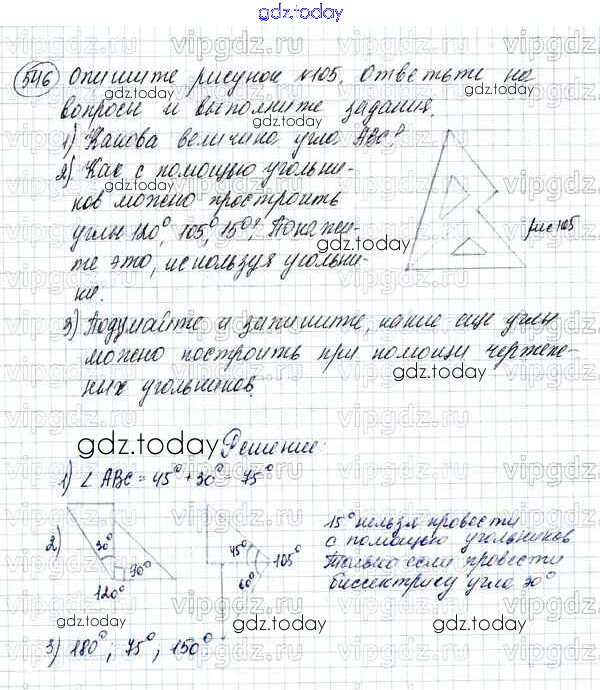 gdz.today
546 Опишите рисунок №105. Ответьте на
вопросы и выполните задания.
1) Какова величина угла ABC?
2) Как с помощью угольни-
ков можно простроить
углы 120°, 105°, 15°? Покажи-
те это, используя угольни-
ки.
рис 105
3) Подумайте и запишите, какие еще углы
можно построить при помощи чертеж-
ных угольников.
Решение:
1) ∠ ABC = 45° + 30° = 75°
2)
30°
90°
120°
45°
60°
105°
15° нельзя провести
с помощью угольников
Только если провести
биссектрису угла 30°
3) 180°, 75°, 150°
gdz.today
gdz.today
gdz.today
gdz.today
gdz.today
gdz.today
gdz.today
gdz.today
gdz.today